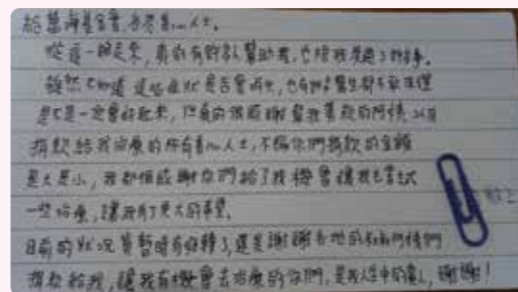 給慧海基金會,各界善心人士。
從這一路走來,真的有的人幫助我,也陪我度過了許多事。
雖然不知道這些症狀是否會再來,也有的醫生都不敢保證
是不是一定會好起來,但真的很感謝幫我募款的阿姨,以及
捐款給我治療的所有善心人士,不論你們捐款的金額
是大是小,我都很感謝你們給了我機會讓我去嘗試
一些治療,讓我有了更大的希望。
目前的狀況算暫時有好轉了,還是謝謝各地的叔叔阿姨們
捐款給我,讓我有機會去治療的你們,是我人生中的貴人,謝謝!